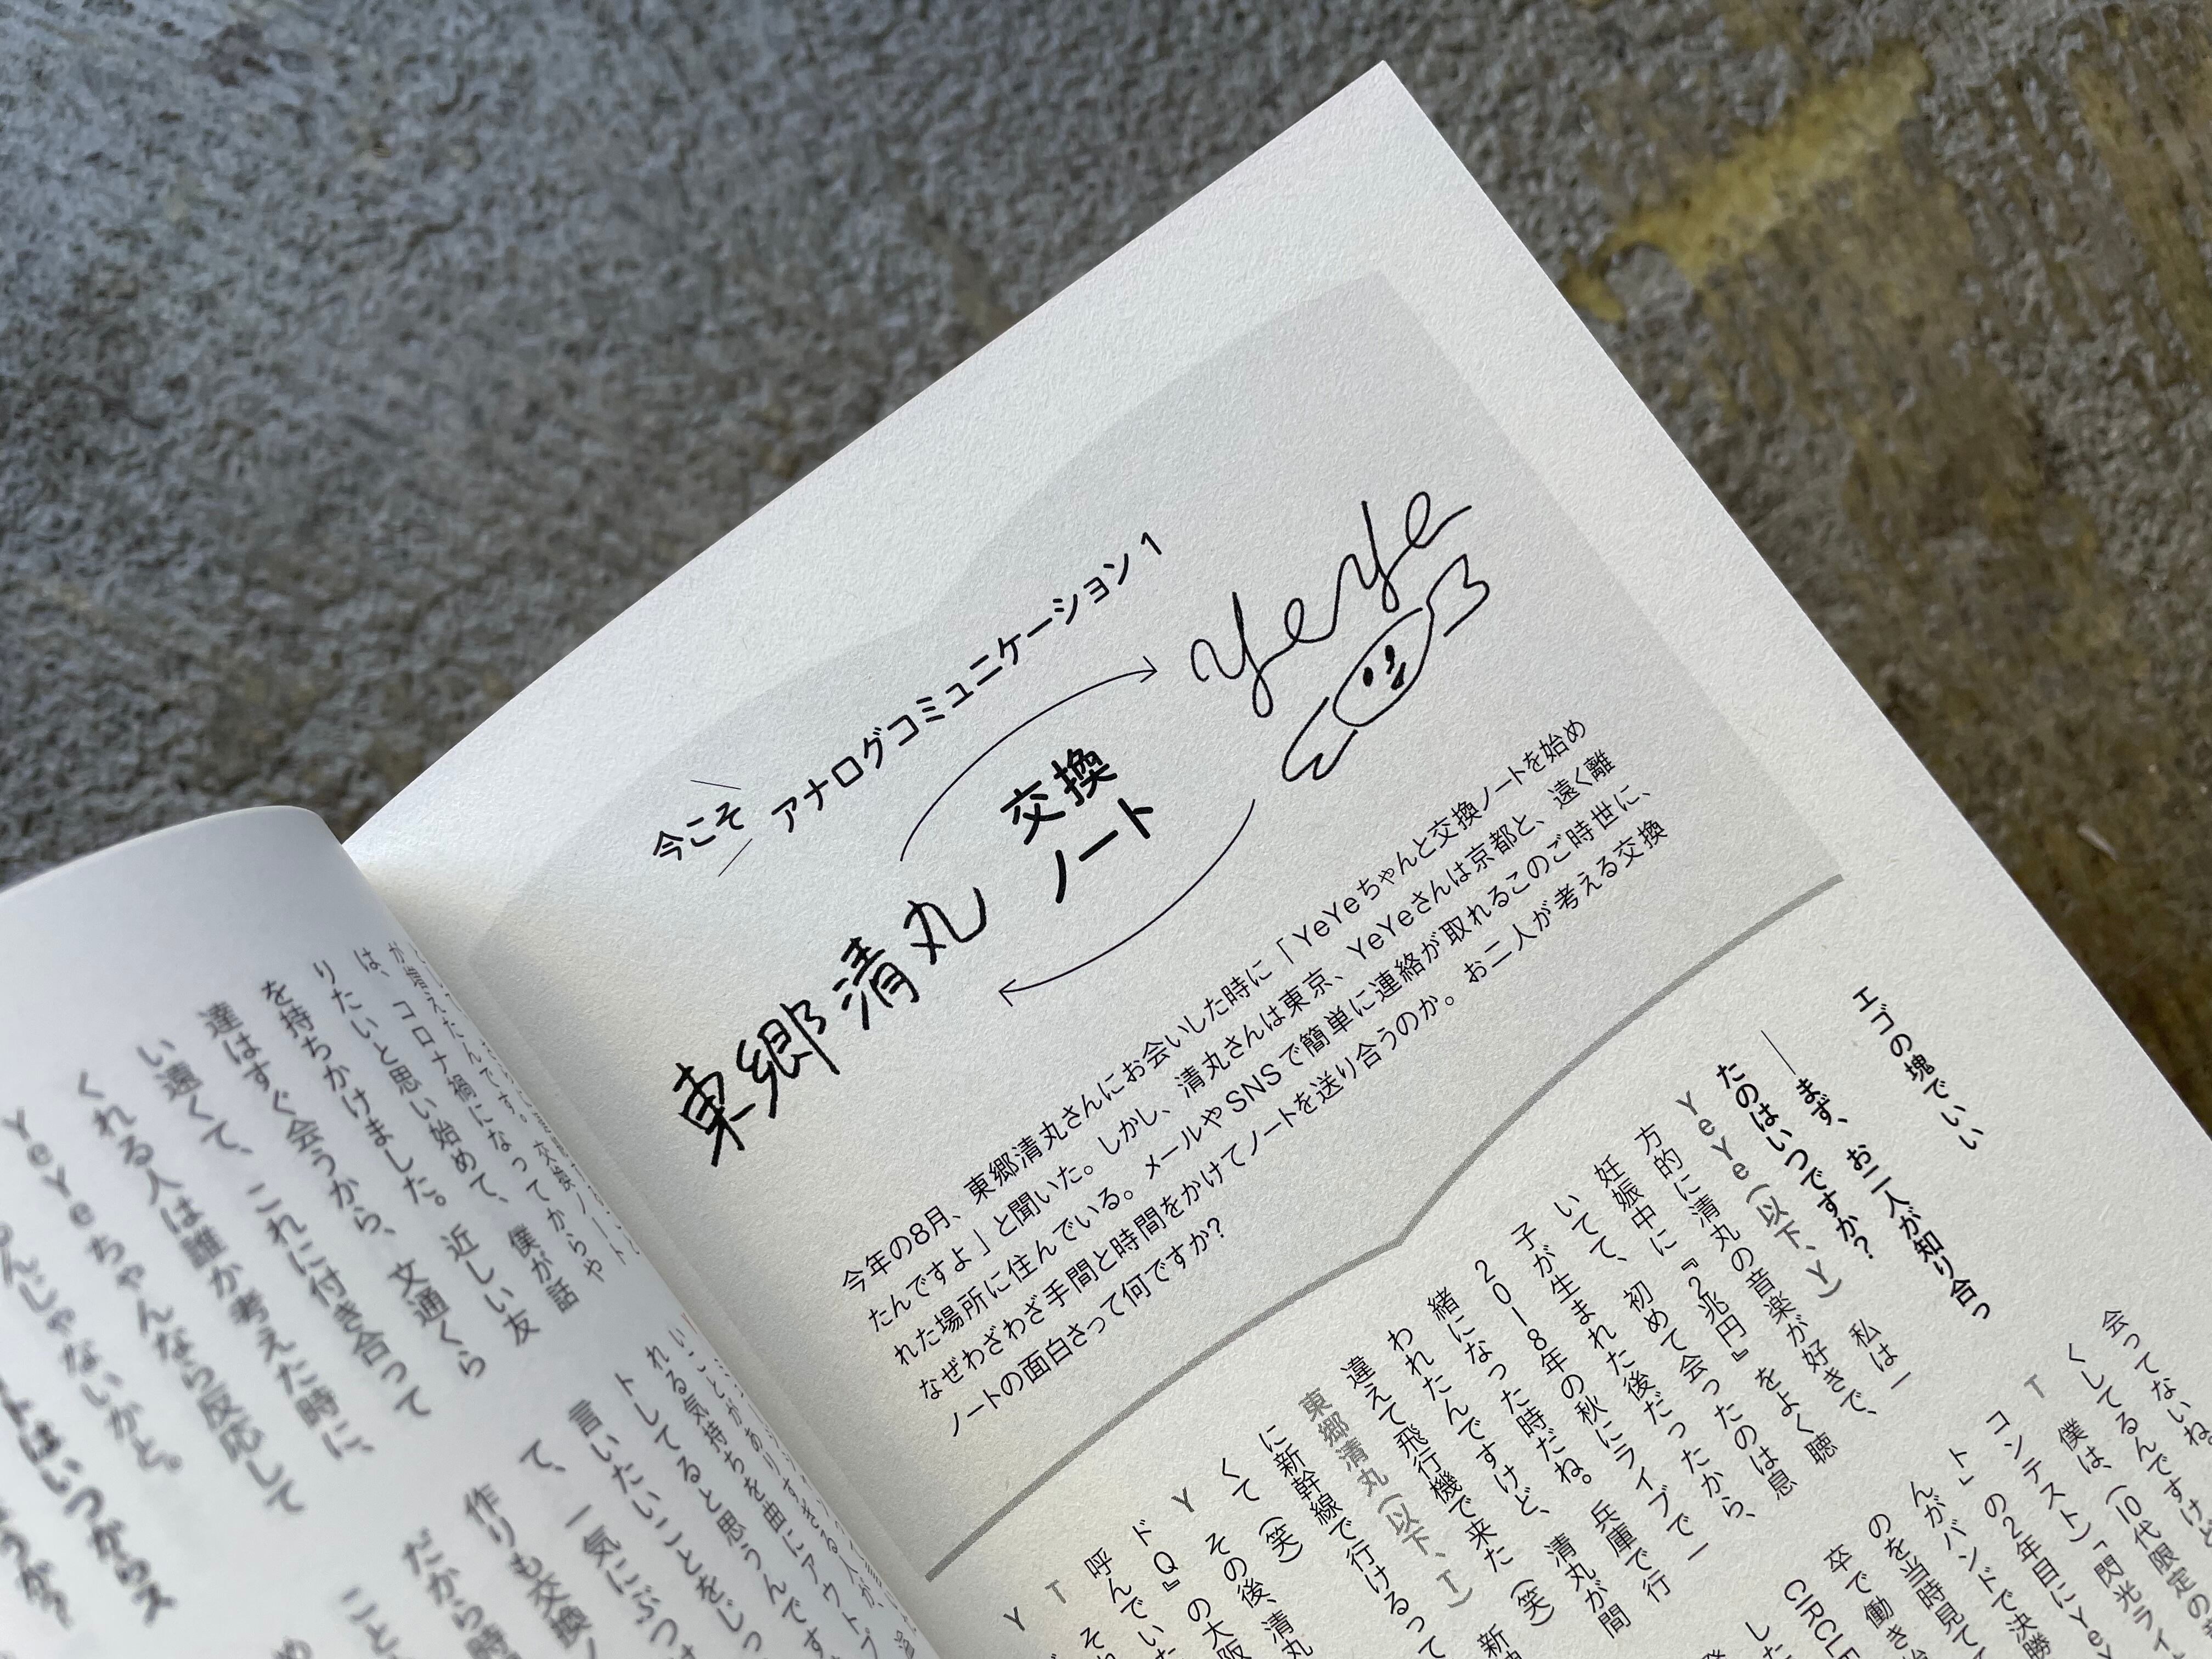 今こそ
アナログコミュニケーション1
YeYe
交換
ノート
東郷清丸
今年の8月、東郷清丸さんにお会いした時に「YeYeちゃんと交換ノートを始め
たんですよ」と聞いた。しかし、清丸さんは東京、YeYeさんは京都と、遠く離
れた場所に住んでいる。メールやSNSで簡単に連絡が取れるこのご時世に、
なぜわざわざ手間と時間をかけてノートを送り合うのか。お二人が考える交換
ノートの面白さって何ですか?
エゴの塊でいい
――まず、お二人が知り合っ
たのはいつですか?
YeYe(以下、Y) 私は一
方的に清丸の音楽が好きで、
妊娠中に『2兆円』をよく聴
いてて、初めて会ったのは息
子が生まれた後だったから、
2018年の秋にライブで一
緒になった時だね。兵庫で行
われたんですけど、清丸が間
違えて飛行機で来た(笑)
東郷清丸(以下、T) 新
に新幹線で行けるって
くて(笑)
Y その後、清丸
ドQ』の大阪
呼んでいた
T それ
Y
会ってないね。
くしてるんですけど
T 僕は、(10代限定の
コンテスト)「閃光ライ
ト」の2年目にYeY
んがバンドで決勝
のを当時見て
卒で働き
CIRCLE
した
は、コロナ禍になってからや
りたいと思い始めて、僕が話
を持ちかけました。近しい友
達はすぐ会うから、文通くら
い遠くて、これに付き合って
くれる人は誰か考えた時に、
YeYeちゃんなら反応して
るんじゃないかと。
トはいつからス
れる気持ちを曲にアウトプ
トしてると思うんです
言いたいことをじっ
て、一気にぶつけ
作りも交換ノ
だから時
こと